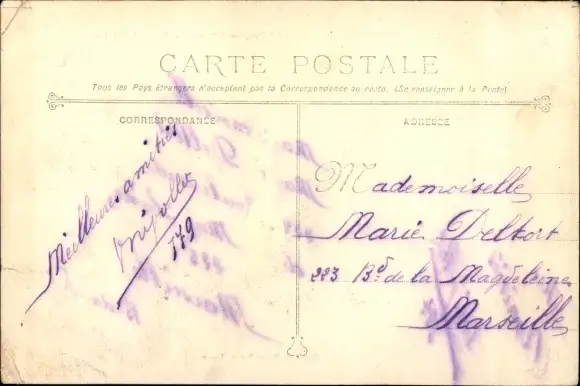 CARTE POSTALE
Tous les Pays étrangers n'acceptent pas la Correspondance au recto. (Se renseigner à la Poste)
CORRESPONDANCE
ADRESSE
Meilleures amitiés
179
Mademoiselle
Marie Delkort
223 Bd de la Magdeleine
Marseille